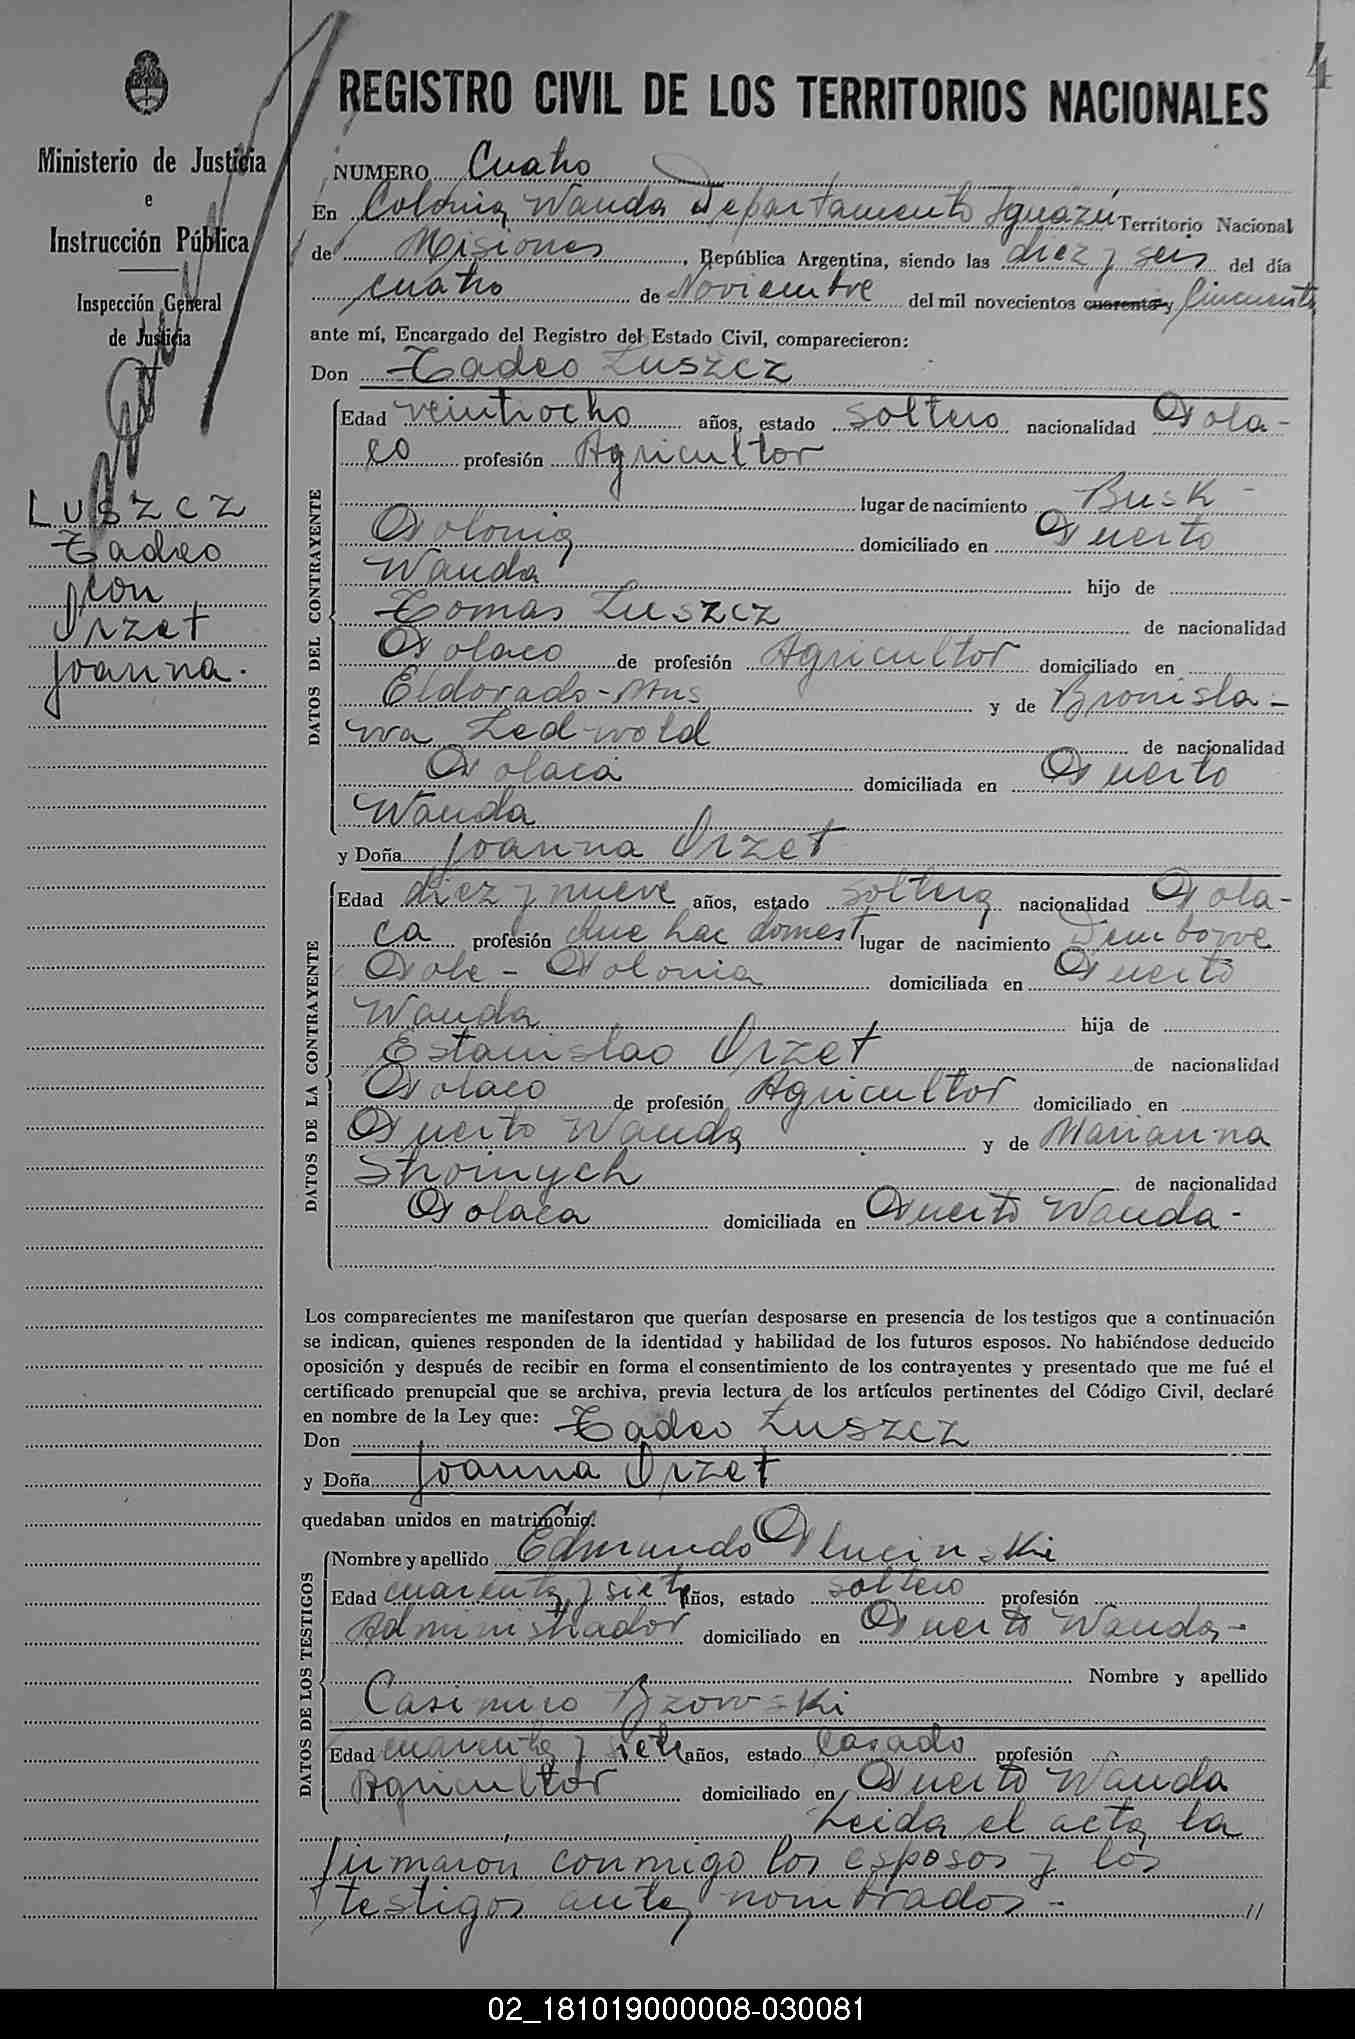 4
Ministerio de Justicia
e
Instrucción Pública
Inspección General
de Justicia
LUSZCZ
Tadeo
con
Orzet
Joanna.
REGISTRO CIVIL DE LOS TERRITORIOS NACIONALES
NUMERO Cuatro
En Colonia Wanda Departamento Iguazú Territorio Nacional
de Misiones, República Argentina, siendo las diez y seis del día
cuatro de Noviembre del mil novecientos cuarenta y Cincuenta
ante mí, Encargado del Registro del Estado Civil, comparecieron:
Don Tadeo Luszcz
DATOS DEL CONTRAYENTE
Edad veintiocho años, estado soltero nacionalidad Pola-
co profesión Agricultor
lugar de nacimiento Busk -
Polonia domiciliado en Puerto
Wanda hijo de
Tomas Luszcz de nacionalidad
Polaco de profesión Agricultor domiciliado en
Eldorado - Mns y de Bronisla-
wa Led-wold de nacionalidad
Polaca domiciliada en Puerto
Wanda
y Doña Joanna Orzet
DATOS DE LA CONTRAYENTE
Edad diez y nueve años, estado soltera nacionalidad Pola-
ca profesión Que hac domest lugar de nacimiento
Pole - Polonia domiciliada en Puerto
Wanda hija de
Estanislao Orzet de nacionalidad
Polaco de profesión Agricultor domiciliado en
Puerto Wanda y de Marianna
de nacionalidad
Polaca domiciliada en Puerto Wanda -
Los comparecientes me manifestaron que querían desposarse en presencia de los testigos que a continuación
se indican, quienes responden de la identidad y habilidad de los futuros esposos. No habiéndose deducido
oposición y después de recibir en forma el consentimiento de los contrayentes y presentado que me fué el
certificado prenupcial que se archiva, previa lectura de los artículos pertinentes del Código Civil, declaré
en nombre de la Ley que:
Don Tadeo Luszcz
y Doña Joanna Orzet
quedaban unidos en matrimonio.
DATOS DE LOS TESTIGOS
Nombre y apellido Edmundo Plucinski
Edad cuarenta y siete años, estado soltero profesión
Administrador domiciliado en Puerto Wanda -
Nombre y apellido
Casimiro Bzowski
Edad cuarenta y siete años, estado Casado profesión
Agricultor domiciliado en Puerto Wanda
Leida el acta la
firmaron conmigo los esposos y los
testigos antes nombrados - //
02_181019000008-030081